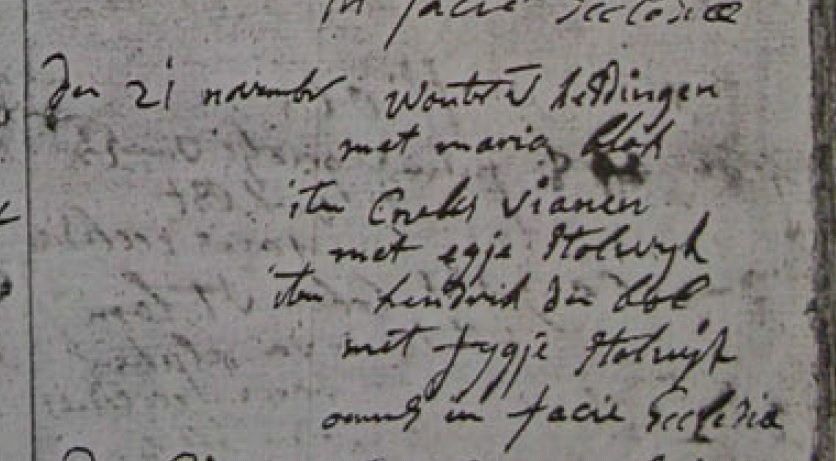 in facie Ecclesiae
den 21 novembr Wouter V heddingen
met maria blok
itm Crelis vianen
met egje Stolwyk
itm hendrik den bol
met fygje Stolwijk
omnes in facie Ecclesia